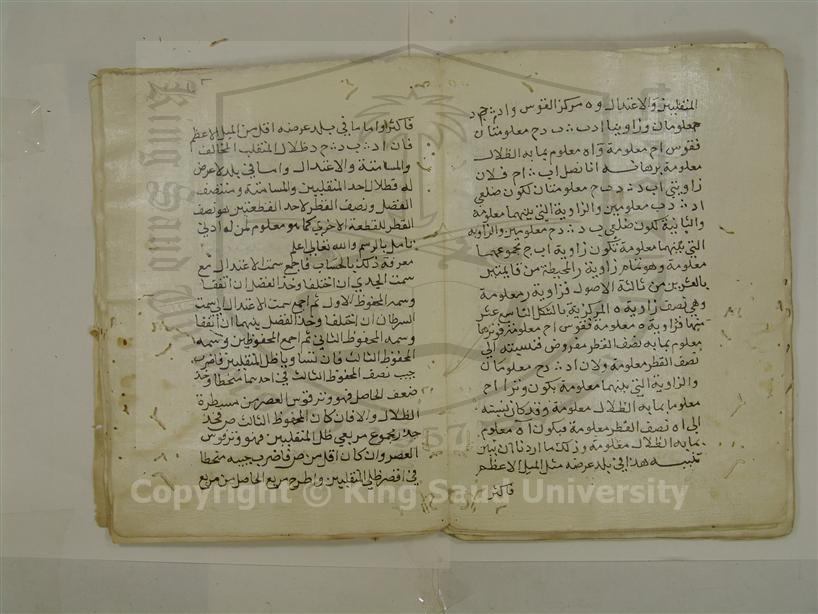 المنقلبين والاعتدال و ه مركز القوس و اد ثم ج د
معلومان وزاويتا ا د ب ث ب د ج معلومتان
فقوس ا ح معلومة و ا ه معلوم بما به الظلال
معلومة برهانه انا نصل ا ب ث ا ح فلان
زاويتي ا ب د ث د ب ح معلومتان لكون ضلعي
ا د ث د ب معلومين والزاوية التي بينهما معلومة
والثانية تكون ضلعي ب د ث د ح معلومين والزاوية
التي بينهما معلومة تكون زاوية ا ب ح مجموعهما
معلومة وهو تمام زاوية ر المحيطة من قايمتين
بالعشرين من ثالثة الاصول فزاوية ر معلومة
وهي نصف زاوية ه المركزية بالشكل التاسع عشر
منها فزاوية ه معلومة فقوس ا ح معلومة فوترها
معلوم بما به نصف القطر مفروض فنسبته الي
نصف القطر معلومة ولان ا د ث د ح معلومان
والزاوية التي بينهما معلومة يكون وتر ا ح
معلوما بما به الظلال معلومة وقد كان نسبته
الي ا ه نصف القطر معلومة فيكون ا ه معلوم
بما به الظلال معلومة وذلك ما اردنا ان نبين
تنبيه هذا في بلد عرضه مثل الميل الاعظم
فاكثر
فاكثر واما ما في بلد عرضه اقل من الميل الاعظم
فان ا د ث ب د ث ح د ظلال المنقلب المخالف
والمسامتة والاعتدال واما في بلد لا عرض
له فظلال احد المنقلبين والمسامتة ومنتصف
الفضل ونصف القطر لاحد القطعتين هو نصف
القطر للقطعة الاخري كما هو معلوم لمن له ادني
تامل بالرسم والله تعالي اعلم
معرفة ذلك بالحساب فاجمع سمت الاعتدال مع
سمت الجدي ان اختلفا وخذ الفضل ان اتفقا
وسمه المحفوظ الاول ثم اجمع سمت الاعتدال الي سمت
السرطان ان اختلفا وخذ الفضل بينهما ان اتفقا
وسمه المحفوظ الثاني ثم اجمع المحفوظين وسمه
المحفوظ الثالث فان تساويا ظل المنقلبين فاضرب
جيب نصف المحفوظ الثالث في احدهما منحطا وخذ
ضعف الحاصل فهو وتر قوس العصر من مسيطرة
الظلال والا فان كان المحفوظ الثالث ص فخذ
جذر مجموع مربعي ظل المنقلبين فهو وتر قوس
العصر وان كان اقل من ص فاضرب جيبه منحطا
في اقصر ظلي المنقلبين واطرح مربع الحاصل من مربع
Copyright © King Saud University
King Saud University
1957